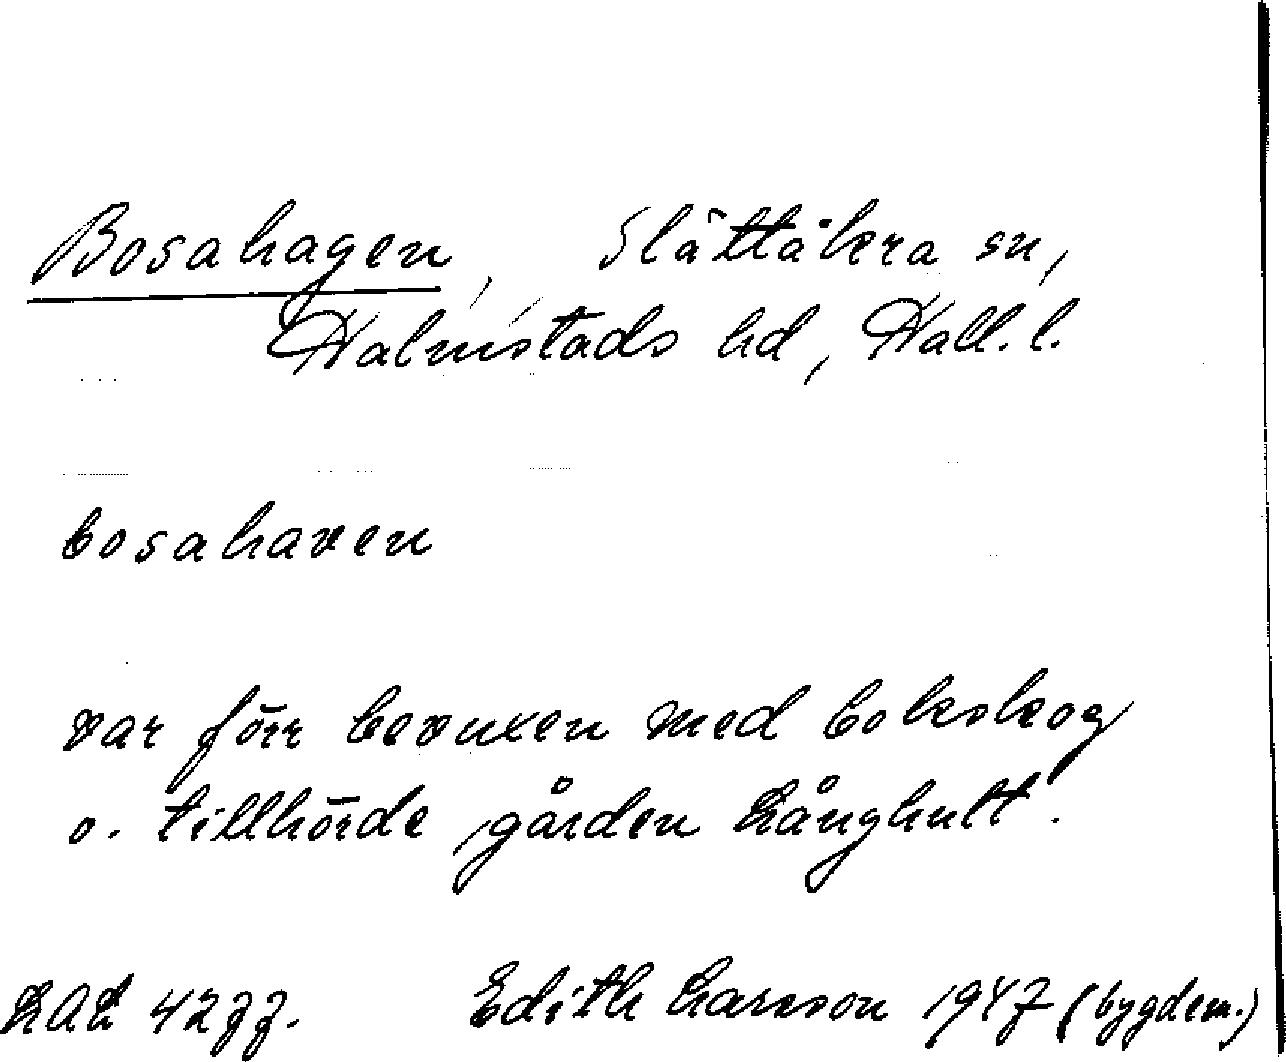 Bosahagen, Slättåkra sn,
Halmstads hd, Hall. l.
bosahaven
var förr bevuxen med bokskog
o. tillhörde gården Långhult.
LAL 4277. Edith Larsson 1947 (bygdem.)